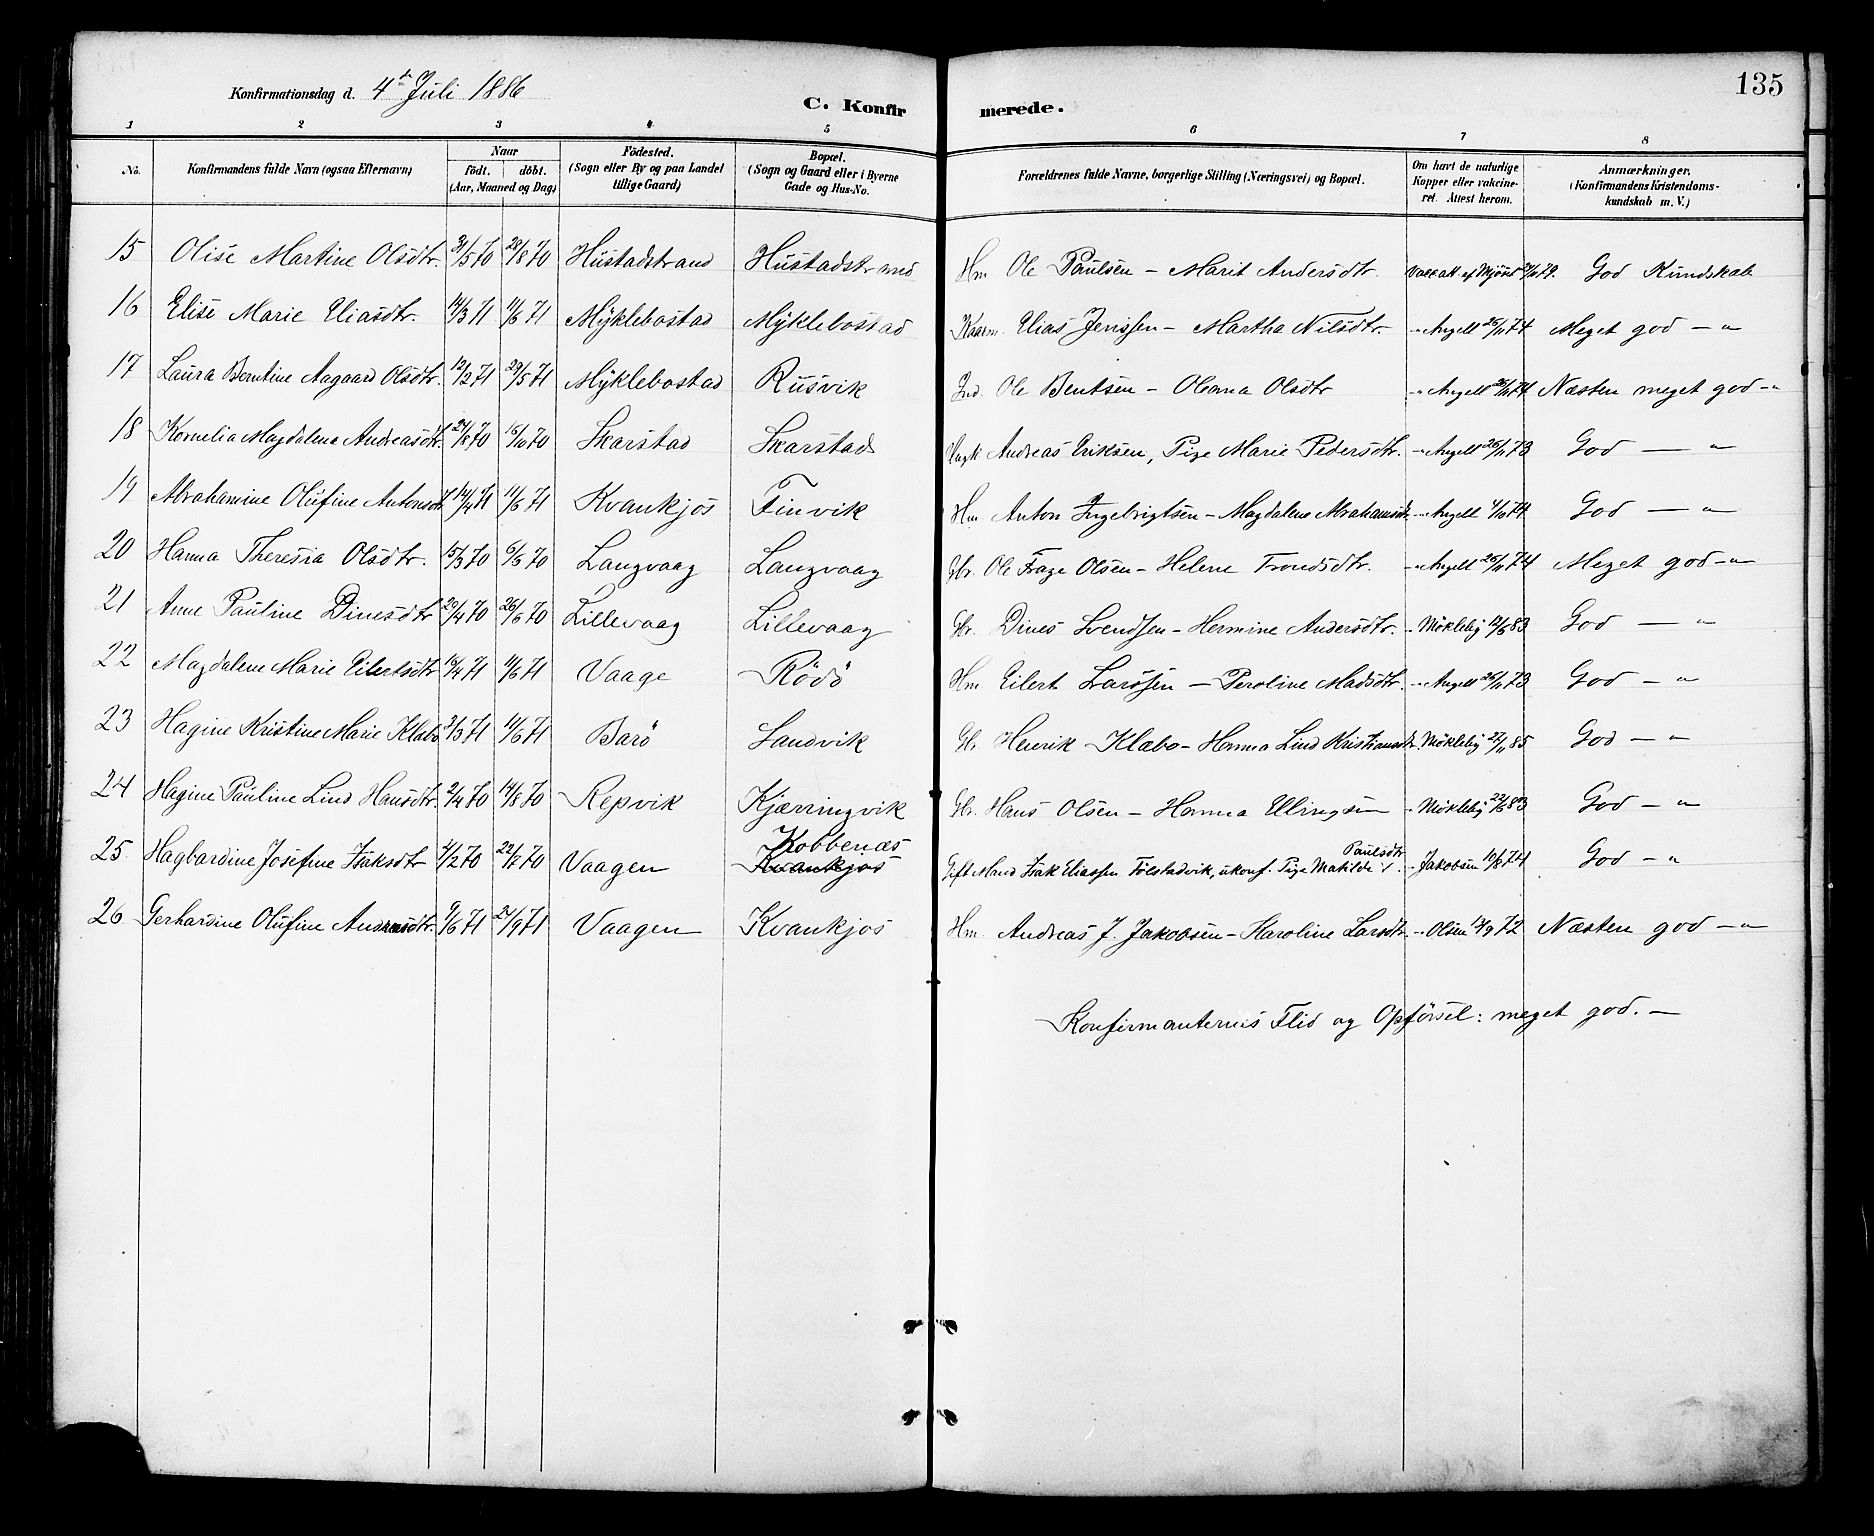 135
Konfirmationsdag d. 4de Juli 1886
C. Konfirmerede.
1 2 3 4 5 6 7 8
No. Konfirmandens fulde Navn (ogsaa Efternavn) Naar födt. döbt. (Aar, Maaned og Dag) Födested. (Sogn eller By og paa Landet tillige Gaard) Bopæl. (Sogn og Gaard eller i Byerne Gade og Hus-No. Forældrenes fulde Navne, borgerlige Stilling (Næringsvei) og Bopæl. Om havt de naturlige Kopper eller vakcineret. Attest herom. Anmærkninger. (Konfirmandens Kristendomskundskab m. V.)
15 Olise Martine Olsdtr. 31/5 70 28/8 70 Hustadstrand Hustadstrand Hm Ole Paulsen - Marit Andersdtr. God Kundskab
16 Elise Marie Eliasdtr. 14/3 71 11/6 71 Myklebostad Myklebostad Elias Jenssen - Martha Nilsdtr. -"- Angell 26/11 74 Meget god - "
17 Laura Berntine Aagaard Olsdtr. 12/2 71 29/5 71 Myklebostad Rusvik Ind. Ole Bentsen - Olema Olsdtr -"- Angell 26/11 74 Næsten meget god - "
18 Kornelia Magdalena Andreasdtr. 24/8 70 16/10 70 Skarstad Skarstad Ungk Andreas Eriksen, Pige Marie Pedersdtr. -"- Angell 26/11 73 God - "
19 Abrahamine Olufine Antonsdtr 14/4 71 11/6 71 Kvankjos Finvik Hm Anton Ingebrigtsen - Magdalena Abrahamsdtr. -"- Angell 74 God - "
20 Hanna Theresia Olsdtr. 15/3 70 6/6 70 Langvaag Langvaag Gbr. Ole Frage Olsen - Helene Trondsdtr. -"- Angell 26/11 74 Meget god - "
21 Anne Pauline Dinesdtr 20/4 70 26/6 70 Lillevaag Lillevaag Gbr. Dines Svendsen - Hermine Andersdtr. -"- Möklebÿ 12/6 83 God - "
22 Magdalene Marie Eilertsdtr 18/4 71 11/6 71 Vaage Rödö Hm Eilert Larssen - Peroline Madsdtr. -"- Angell 26/11 73 God - "
23 Hagine Kristine Marie Klæbo 3/3 71 11/6 71 Barö Sandvik Gbr. Henrik Klæbo - Hanna Lind Kristiansdtr. Möklebÿ 22/11 85 God - "
24 Hagine Pauline Lind Hansdtr. 2/4 70 14/8 70 Repvik Kjærringvik Gbr. Hans Olsen - Hanna Ellingsen -"- Möklebÿ 22/6 83 God - "
25 Hagbardine Josefine Isaksdtr 4/2 70 22/5 70 Vaagen Kobbenæs Kvankjos Gift Mand Isak Eliassen Tolstadvik, ukonf. Pige Matilde Paulsdtr. -"- Jakobsen 10/8 74 God - "
26 Gerhardine Olufine Andreasdtr. 9/6 71 24/9 71 Vaagen Kvankjos Hm. Andreas J. Jakobsen - Karoline Larsdtr. -"- Olsen 13/9 72 Næsten god - "
Konfirmanternes Flid og Opförsel: meget god. -